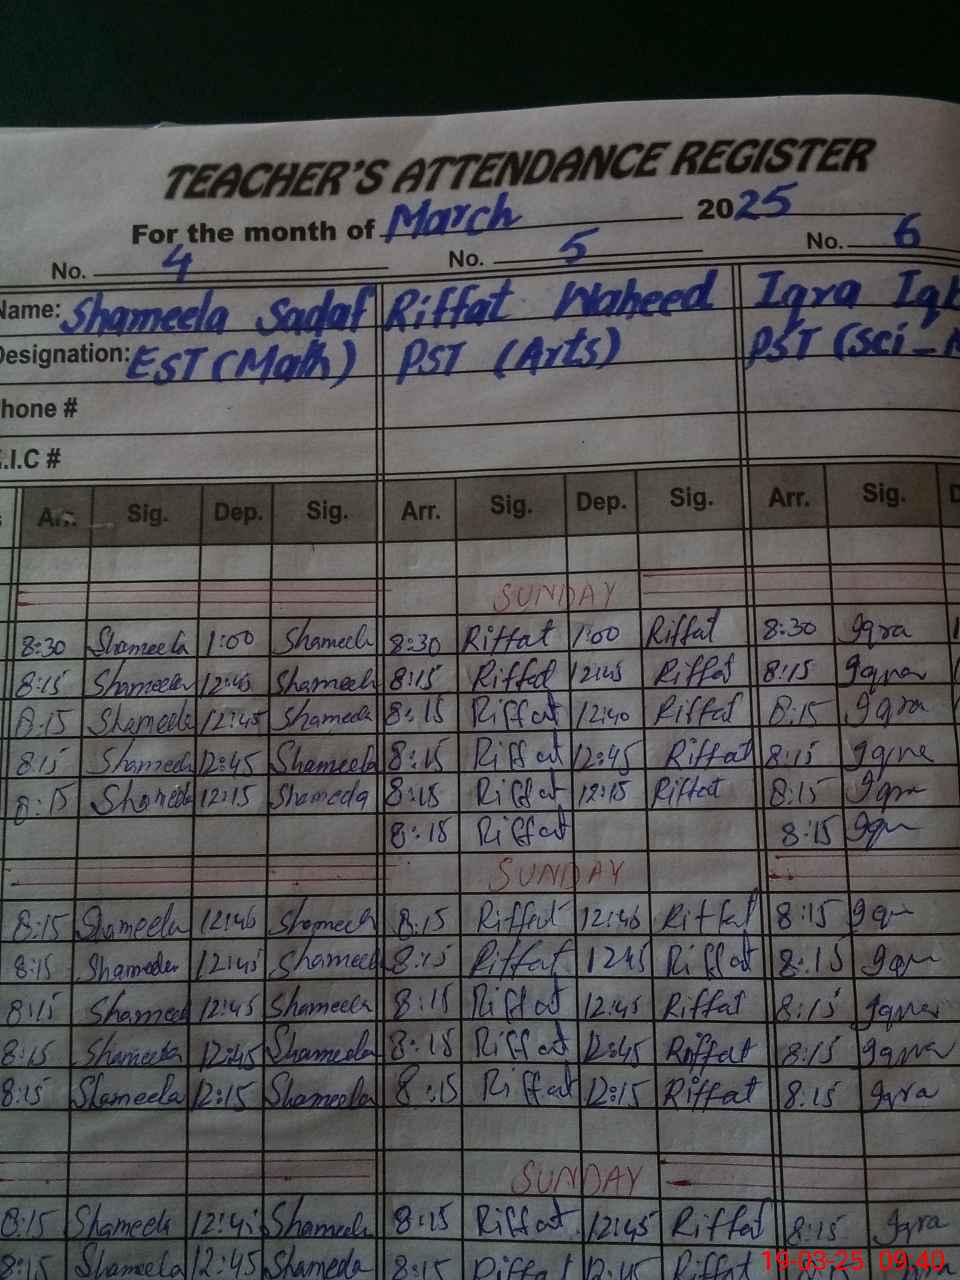 TEACHER'S ATTENDANCE REGISTER
For the month of March 2025
No. 4 No. 5 No. 6
Name: Shameela Sadaf Riffat Waheed Iqra
Designation: EST (Math) PST (Arts) PST (Sci-
hone #
.I.C #
Arr. Sig. Dep. Sig. Arr. Sig. Dep. Sig. Arr. Sig. D
SUNDAY
8:30 Shameela 1:00 Shameela 8:30 Riffat 1:00 Riffat 8:30 Iqra
8:15 Shameela 12:45 Shameela 8:15 Riffat 12:45 Riffat 8:15 Iqra
8:15 Shameela 12:45 Shameela 8:15 Riffat 12:40 Riffat 8:15 Iqra
8:15 Shameela 12:45 Shameela 8:15 Riffat 12:45 Riffat 8:15 Iqra
8:15 Shameela 12:15 Shameela 8:15 Riffat 12:15 Riffat 8:15 Iqra
8:15 Riffat 8:15 Iqra
SUNDAY
8:15 Shameela 12:46 Shameela 8:15 Riffat 12:46 Riffat 8:15 Iqra
8:15 Shameela 12:45 Shameela 8:15 Riffat 1245 Riffat 8:15 Iqra
8:15 Shameela 12:45 Shameela 8:15 Riffat 12:45 Riffat 8:15 Iqra
8:15 Shameela 12:45 Shameela 8:15 Riffat 12:45 Riffat 8:15 Iqra
8:15 Shameela 12:15 Shameela 8:15 Riffat 12:15 Riffat 8:15 Iqra
SUNDAY
8:15 Shameela 12:45 Shameela 8:15 Riffat 12:45 Riffat 8:15 Iqra
8:15 Shameela 12:45 Shameela 8:15 Riffat 12:45 Riffat
19-03-25 09:40